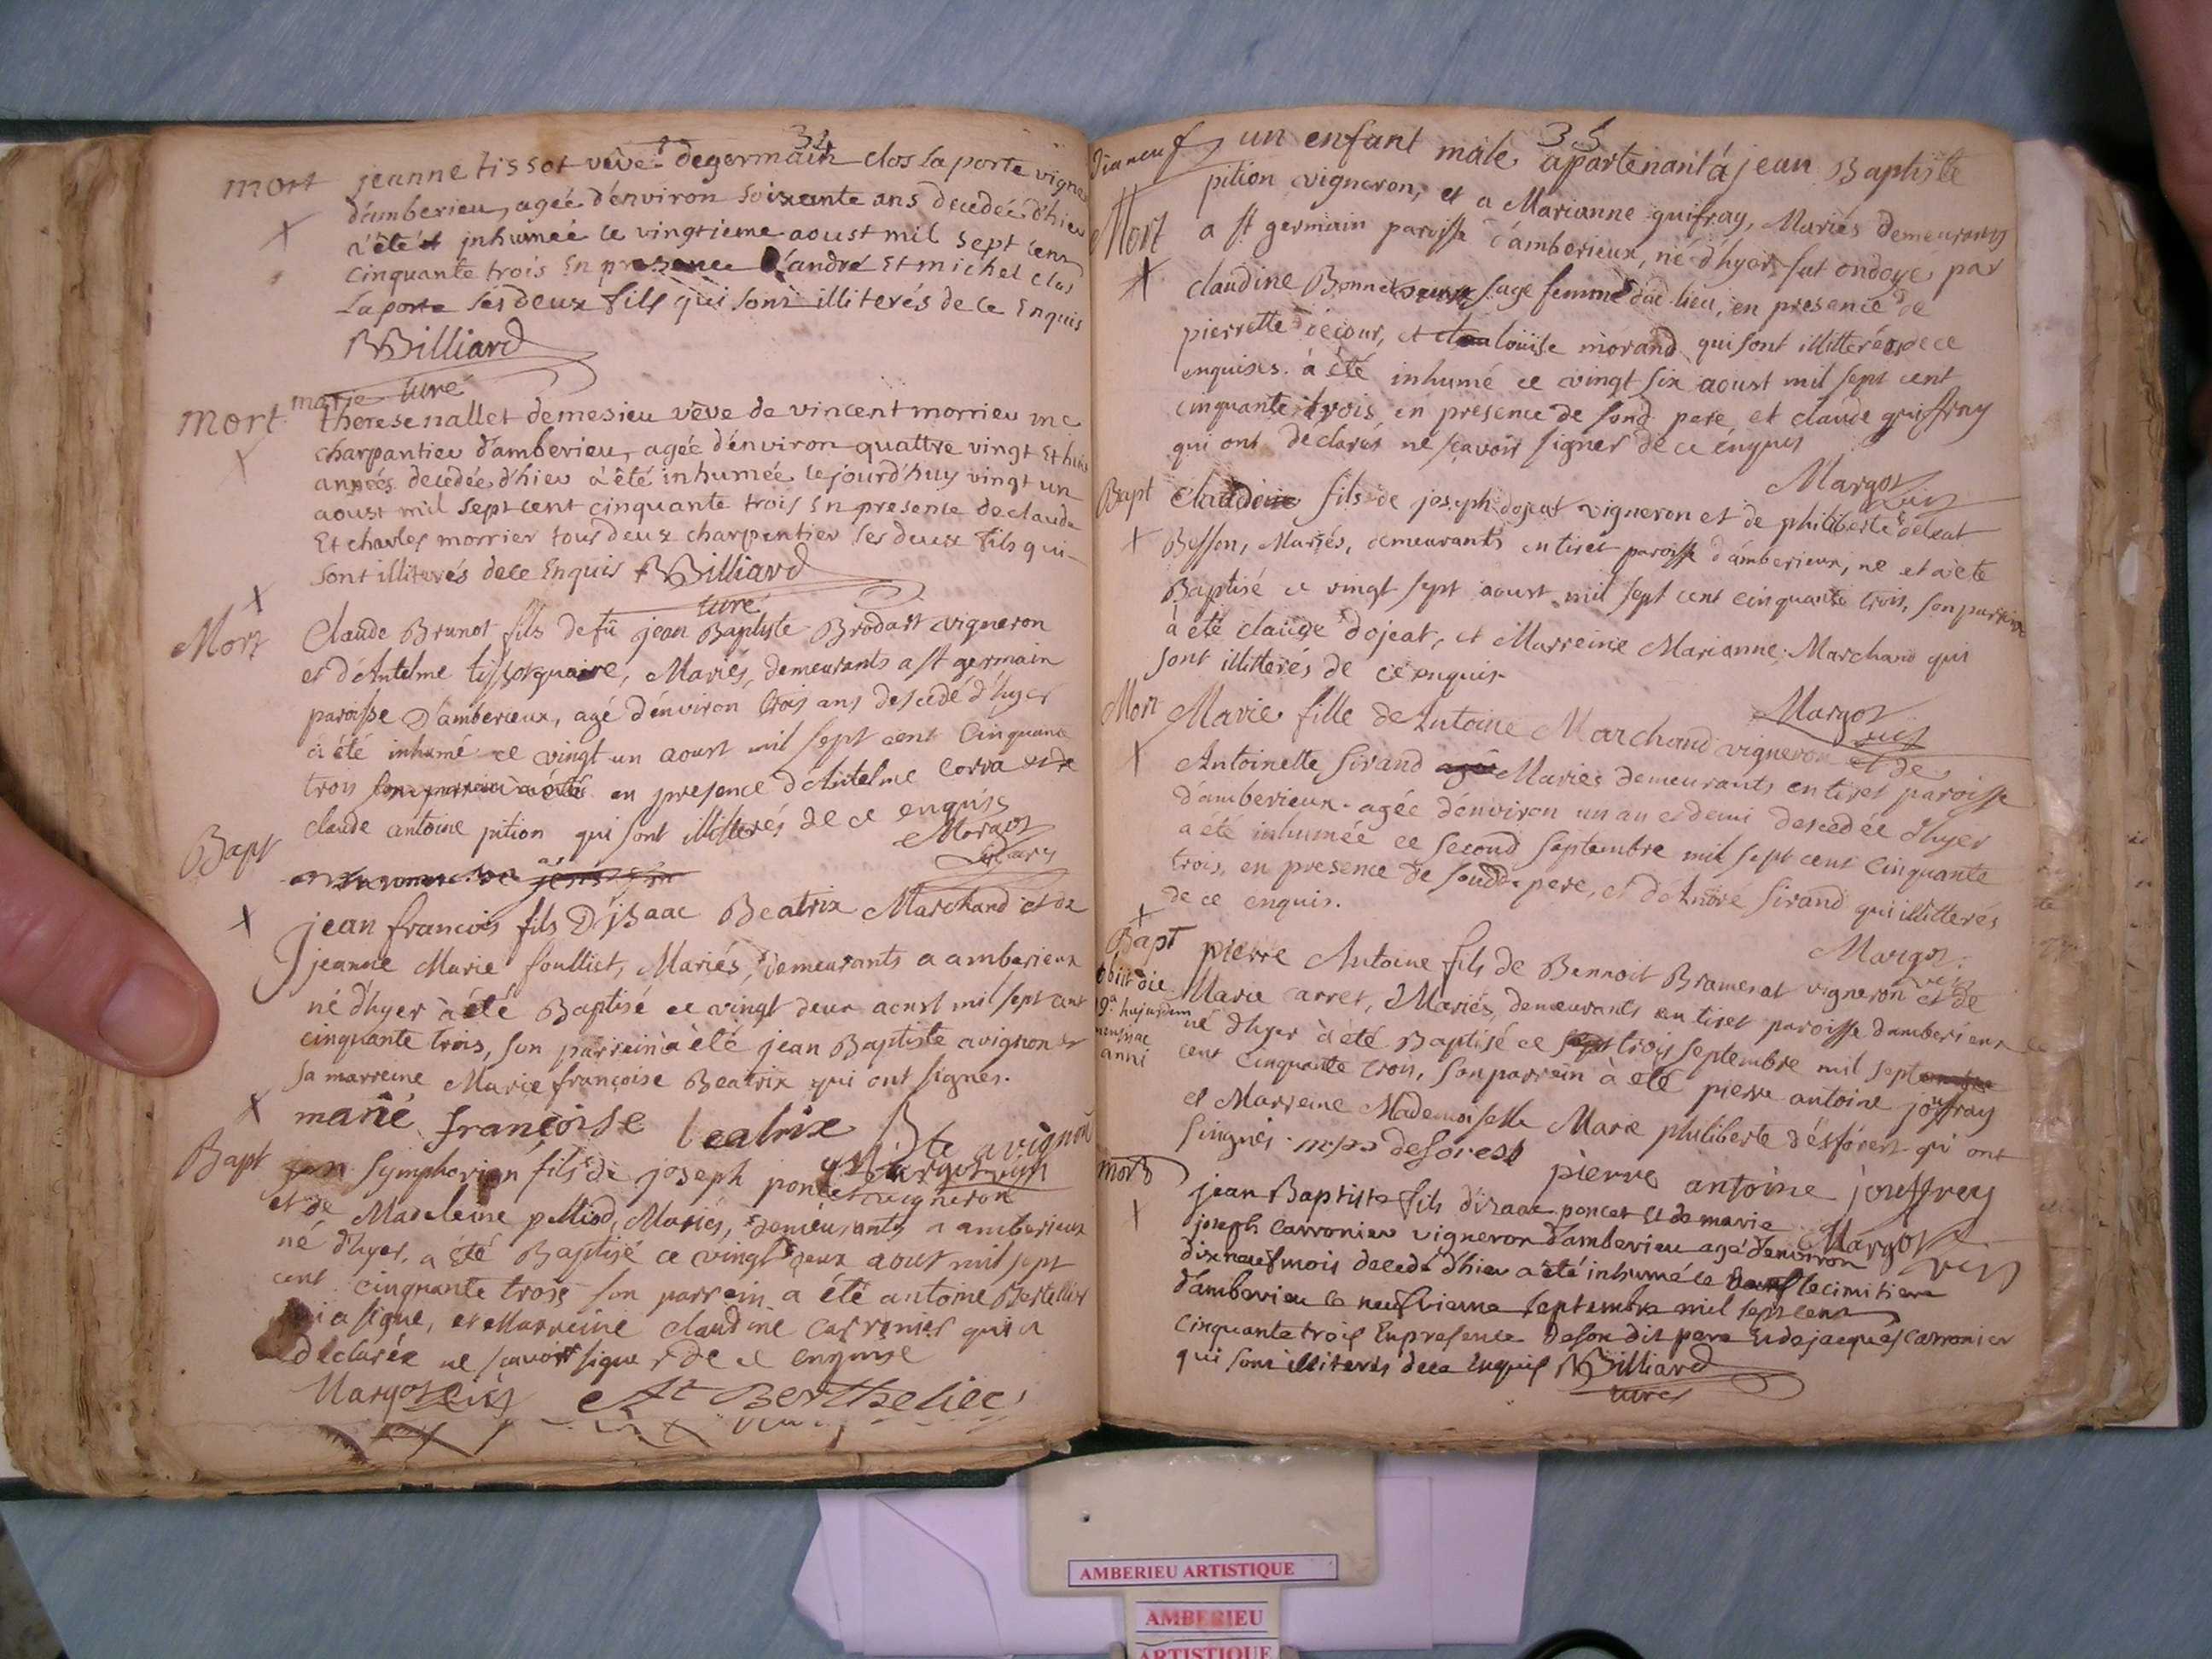 34
mort jeanne tissot vêve de germain clos la porte vigne
d'amberieu, agée d'environ soixante ans decedée d'hier
a êté inhumée le vingtieme aoust mil sept cent
cinquante trois En presence d'andré Et michel clos
la porte ses deux fils qui sont illiterés de ce Enquis
Billiard
curé
marie
mort therese nallet demesieu vêve de vincent morrieu me
charpantier d'amberieu, agée d'environ quattre vingt Et huit
années decedée d'hier à êté inhumée cejourd'huy vingt un
aoust mil sept cent cinquante trois En presence de claude
Et charles morrier tous deux charpentier ses deux fils qui
sont illiterés de ce Enquis Billiard
curé
Mort Claude Brunot fils de fû jean Baptiste Brodart vigneron
et d'Antelme tissot, Mariés, demeurants a st germain
paroisse d'amberieux, agé d'environ trois ans descedé d'hyer
a été inhumé ce vingt un aoust mil sept cent Cinquante
trois en presence d'Antelme Corra et de
claude antoine pition qui sont illitterés de ce enquis
Margot
vic
Bapt
jean francois fils D'isaac Beatrix Marchand et de
jeanne Marie foulliet, Mariés, demeurants a amberieux
né d'hyer à été Baptisé ce vingt deux aoust mil sept cent
cinquante trois, son parrein à été jean Baptiste avignon et
sa marreine Marie françoise Beatrix qui ont signés.
marie françoise beatrix Bte avignon
Margot vic
Bapt Symphorien fils de joseph poncet vigneron
et de Madeleine pelliod, Mariés, demeurants a amberieux
né d'hyer, a été Baptisé ce vingt deux aout mil sept
cent cinquante trois son parrein a été antoine Bertellier
qui a signe, et Marreine claudine carronier qui a
declarée ne sçavoir signer de ce enquise
Margot vic At Berthelier
35
un enfant male apartenant à jean Baptiste
pition vigneron, et a Marianne guifray, Mariés demeurants
Mort a st germain paroisse d'amberieux, né d'hyer, fut ondoyé par
claudine Bonnet sage femme dud lieu, en presence de
pierrette decour, et louise morand qui sont illitterées de ce
enquises. à été inhumé ce vingt six aoust mil sept cent
cinquante trois en presence de sond pere et claude guiffray
qui ont declarés ne sçavoir signer de ce enquis
Margot vic
Bapt Claude fils de joseph dojeat vigneron et de philiberte deleat
Besson, Mariés, demeurants en tiret paroisse d'amberieux, ne et a ete
Baptisé ce vingt sept aoust mil sept cent cinquante trois, son parrein
à été claude dojeat, et Marreine Marianne Marchand qui
sont illitterés de ce enquis
Margot
vic
Mort Marie fille de Antoine Marchand vigneron et de
Antoinette Sirand Mariés demeurants en tiret paroisse
d'amberieux. agée d'environ un an et demi descedée d'hyer
a été inhumée ce second septembre mil sept cent Cinquante
trois, en presence de soudt pere, et d'André Sirand qui illitterés
de ce enquis.
Margot
vic
Bapt pierre Antoine fils de Bennoit Bramerat vigneron et de
obiit die Marie carret, Mariés, demeurants en tiret paroisse d'amberieux
9a hujusdem né d'hyer à été Baptisé ce trois septembre mil sept
mensis ac cent Cinquante trois, son parrein à été pierre antoine jouffray
anni et Marreine Mademoiselle Marie philiberte désforest qui ont
singnés. desforest pierre antoine jouffrey
Margot vic
mort jean Baptiste fils d'izaac poncet Et de marie
joseph carronier vigneron d'amberieu agé d'environ
dix neuf mois decedé d'hier a êté inhumé le cimitiere
d'amberieu le neufvieme septembre mil sept cent
cinquante trois En presence de son dit pere Et de jacques carronier
qui sont illiterés de ce Enquis Billiard
curé
AMBERIEU ARTISTIQUE
AMBERIEU
ARTISTIQUE